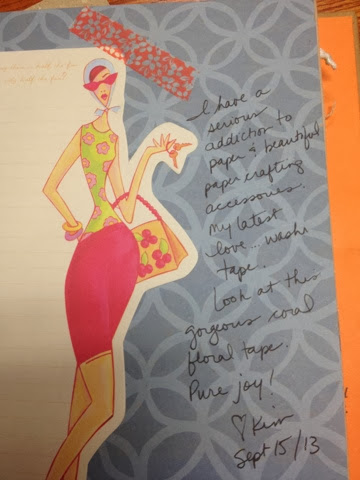 I have a
serious
addiction to
paper & beautiful
paper crafting
accessories.
My latest
love... washi
tape.
Look at this
gorgeous coral
floral tape.
Pure joy!
♡ Kim
Sept 15/13